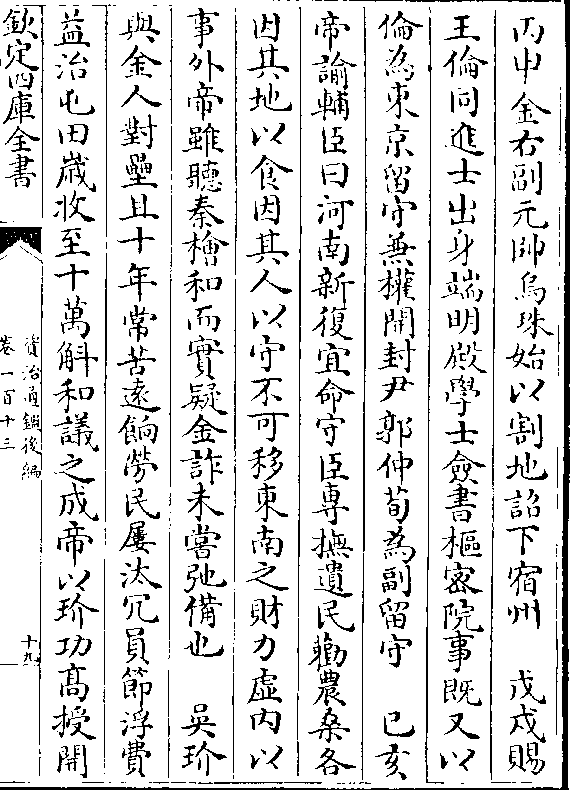 丙申金右副元帥烏珠始以割地詔下宿州　戊戌賜
王倫同進士出身端明殿學士僉書樞密院事既又以
倫為東京留守兼權開封尹郭仲荀為副留守　己亥
帝諭輔臣曰河南新復宜命守臣專撫遺民勸農桑各
因其地以食因其人以守不可移東南之財力虛内以
事外帝雖聽秦檜和而實疑金詐未嘗弛備也　吳玠
與金人對壘且十年常苦逺餉勞民屢汰冗員節浮費
益治屯田嵗收至十萬斛和議之成帝以玠功髙授開
欽定四庫全書
資治通鑑後編
卷一百十三
十九